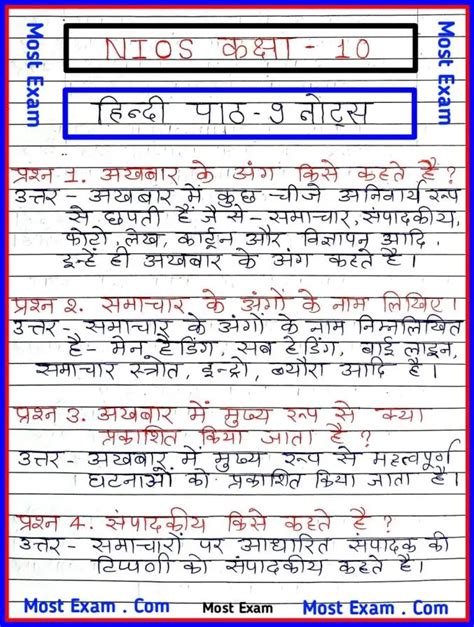 NIOS कक्षा - 10
Most Exam
Most Exam
हिन्दी पाठ-9 नोट्स
प्रश्न 1. अखबार के अंग किसे कहते है ?
उत्तर - अखबार में कुछ चीजे अनिवार्य रूप
से छपती है जैसे - समाचार, संपादकीय,
फोटो, लेख, कार्टून और विज्ञापन आदि,
इन्हें ही अखबार के अंग कहते है ।
प्रश्न 2. समाचार के अंगों के नाम लिखिए ।
उत्तर - समाचार के अंगों के नाम निम्नलिखित
है - मेन हैडिंग, सब हेडिंग, बाई लाइन,
समाचार स्त्रोत, इन्ट्रो, ब्यौरा आदि है ।
प्रश्न 3. अखबार में मुख्य रूप से क्या
प्रकाशित किया जाता है ?
उत्तर - अखबार में मुख्य रूप से महत्वपूर्ण
घटनाओं को प्रकाशित किया जाता है ।
प्रश्न 4. संपादकीय किसे कहते है ?
उत्तर - समाचारों पर आधारित संपादक की
टिप्पणी को संपादकीय कहते है।
Most Exam . Com
Most Exam
Most Exam . Com